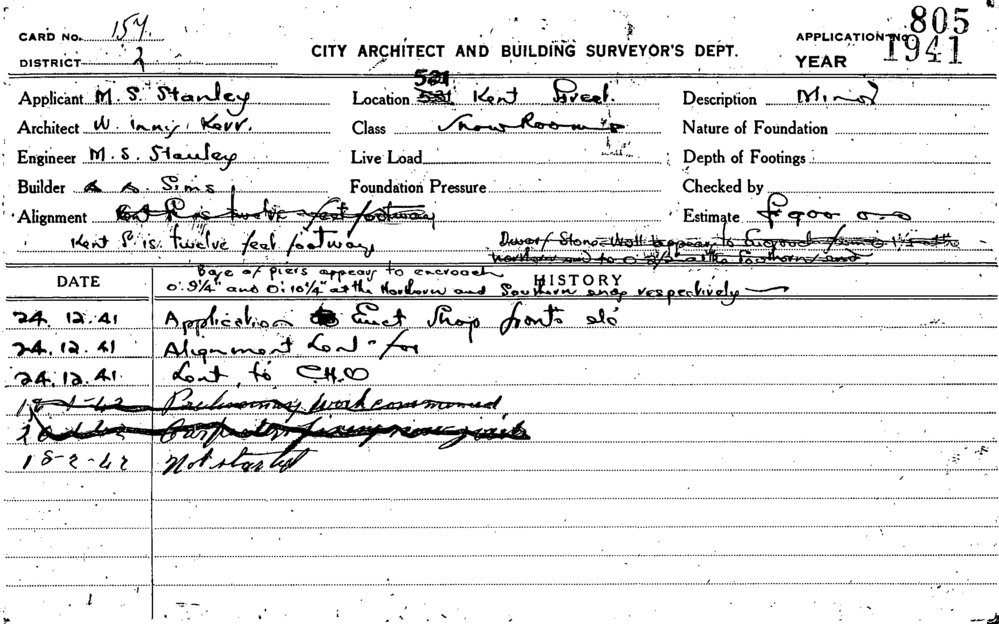 CARD NO. 157.
APPLICATION NO. 805
DISTRICT 2
CITY ARCHITECT AND BUILDING SURVEYOR'S DEPT.
YEAR 1941
Applicant M. S. Stanley
Location 521 Kent Street.
Description Minor
Architect W. Kerr.
Class Show Rooms
Nature of Foundation
Engineer M. S. Stanley
Live Load
Depth of Footings
Builder Sims
Foundation Pressure
Checked by
Alignment twelve feet footway
Estimate £900
Kent S. is twelve feet footway
Dwarf Stone Wall appears to
DATE
HISTORY
Base of piers appears to encroach
0' 9¼" and 0' 10¼" at the Northern and Southern ends respectively
24. 12. 41 Application to Erect Shop fronts etc
24. 12. 41 Alignment Sent for
24. 12. 41. Sent to C.H.O
Preliminary work commenced
18-2-42 Not started